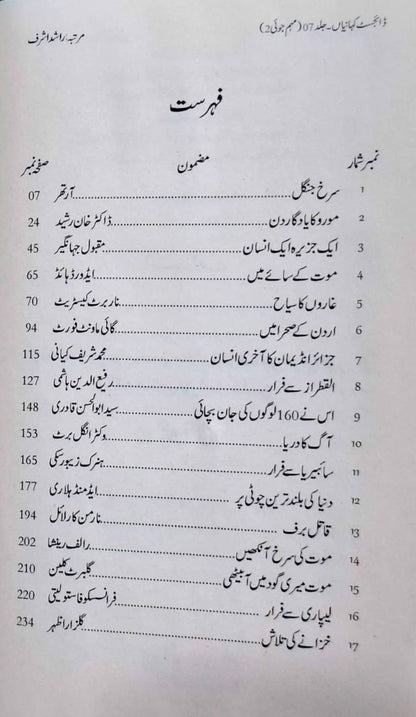 ڈائجسٹ کہانیاں۔ جلد 07 (مہم جوئی 2) مرتبہ: راشد اشرف
فہرست
نمبر شمار مضمون صفحہ نمبر
1 سرخ جنگل آرتھر 07
2 مورو کا یادگار دن ڈاکٹر خان رشید 24
3 ایک جزیرہ ایک انسان مقبول جہانگیر 45
4 موت کے سائے میں ایڈورڈ ہائڈ 65
5 غاروں کا سیاح ناربرٹ کیسٹریٹ 70
6 اردن کے صحرا میں گائی ماونٹ فورٹ 94
7 جزائر انڈیمان کا آخری انسان محمد شریف کیانی 115
8 القطراز سے فرار رفیع الدین ہاشمی 127
9 اس نے 160 لوگوں کی جان بچائی سید ابوالحسن قادری 148
10 آگ کا دریا وکٹر انگل برٹ 153
11 سائبیریا سے فرار ہنرک زیبورسکی 165
12 دنیا کی بلند ترین چوٹی پر ایڈمنڈ ہلاری 177
13 قاتل برف نارمن کارلائل 194
14 موت کی سرخ آنکھیں رالف رینشا 202
15 موت میری گود میں آ بیٹھی گلبرٹ کلین 210
16 لیپاری سے فرار فرانسسکو فاستولیتی 220
17 خزانے کی تلاش گلزار اظہر 234